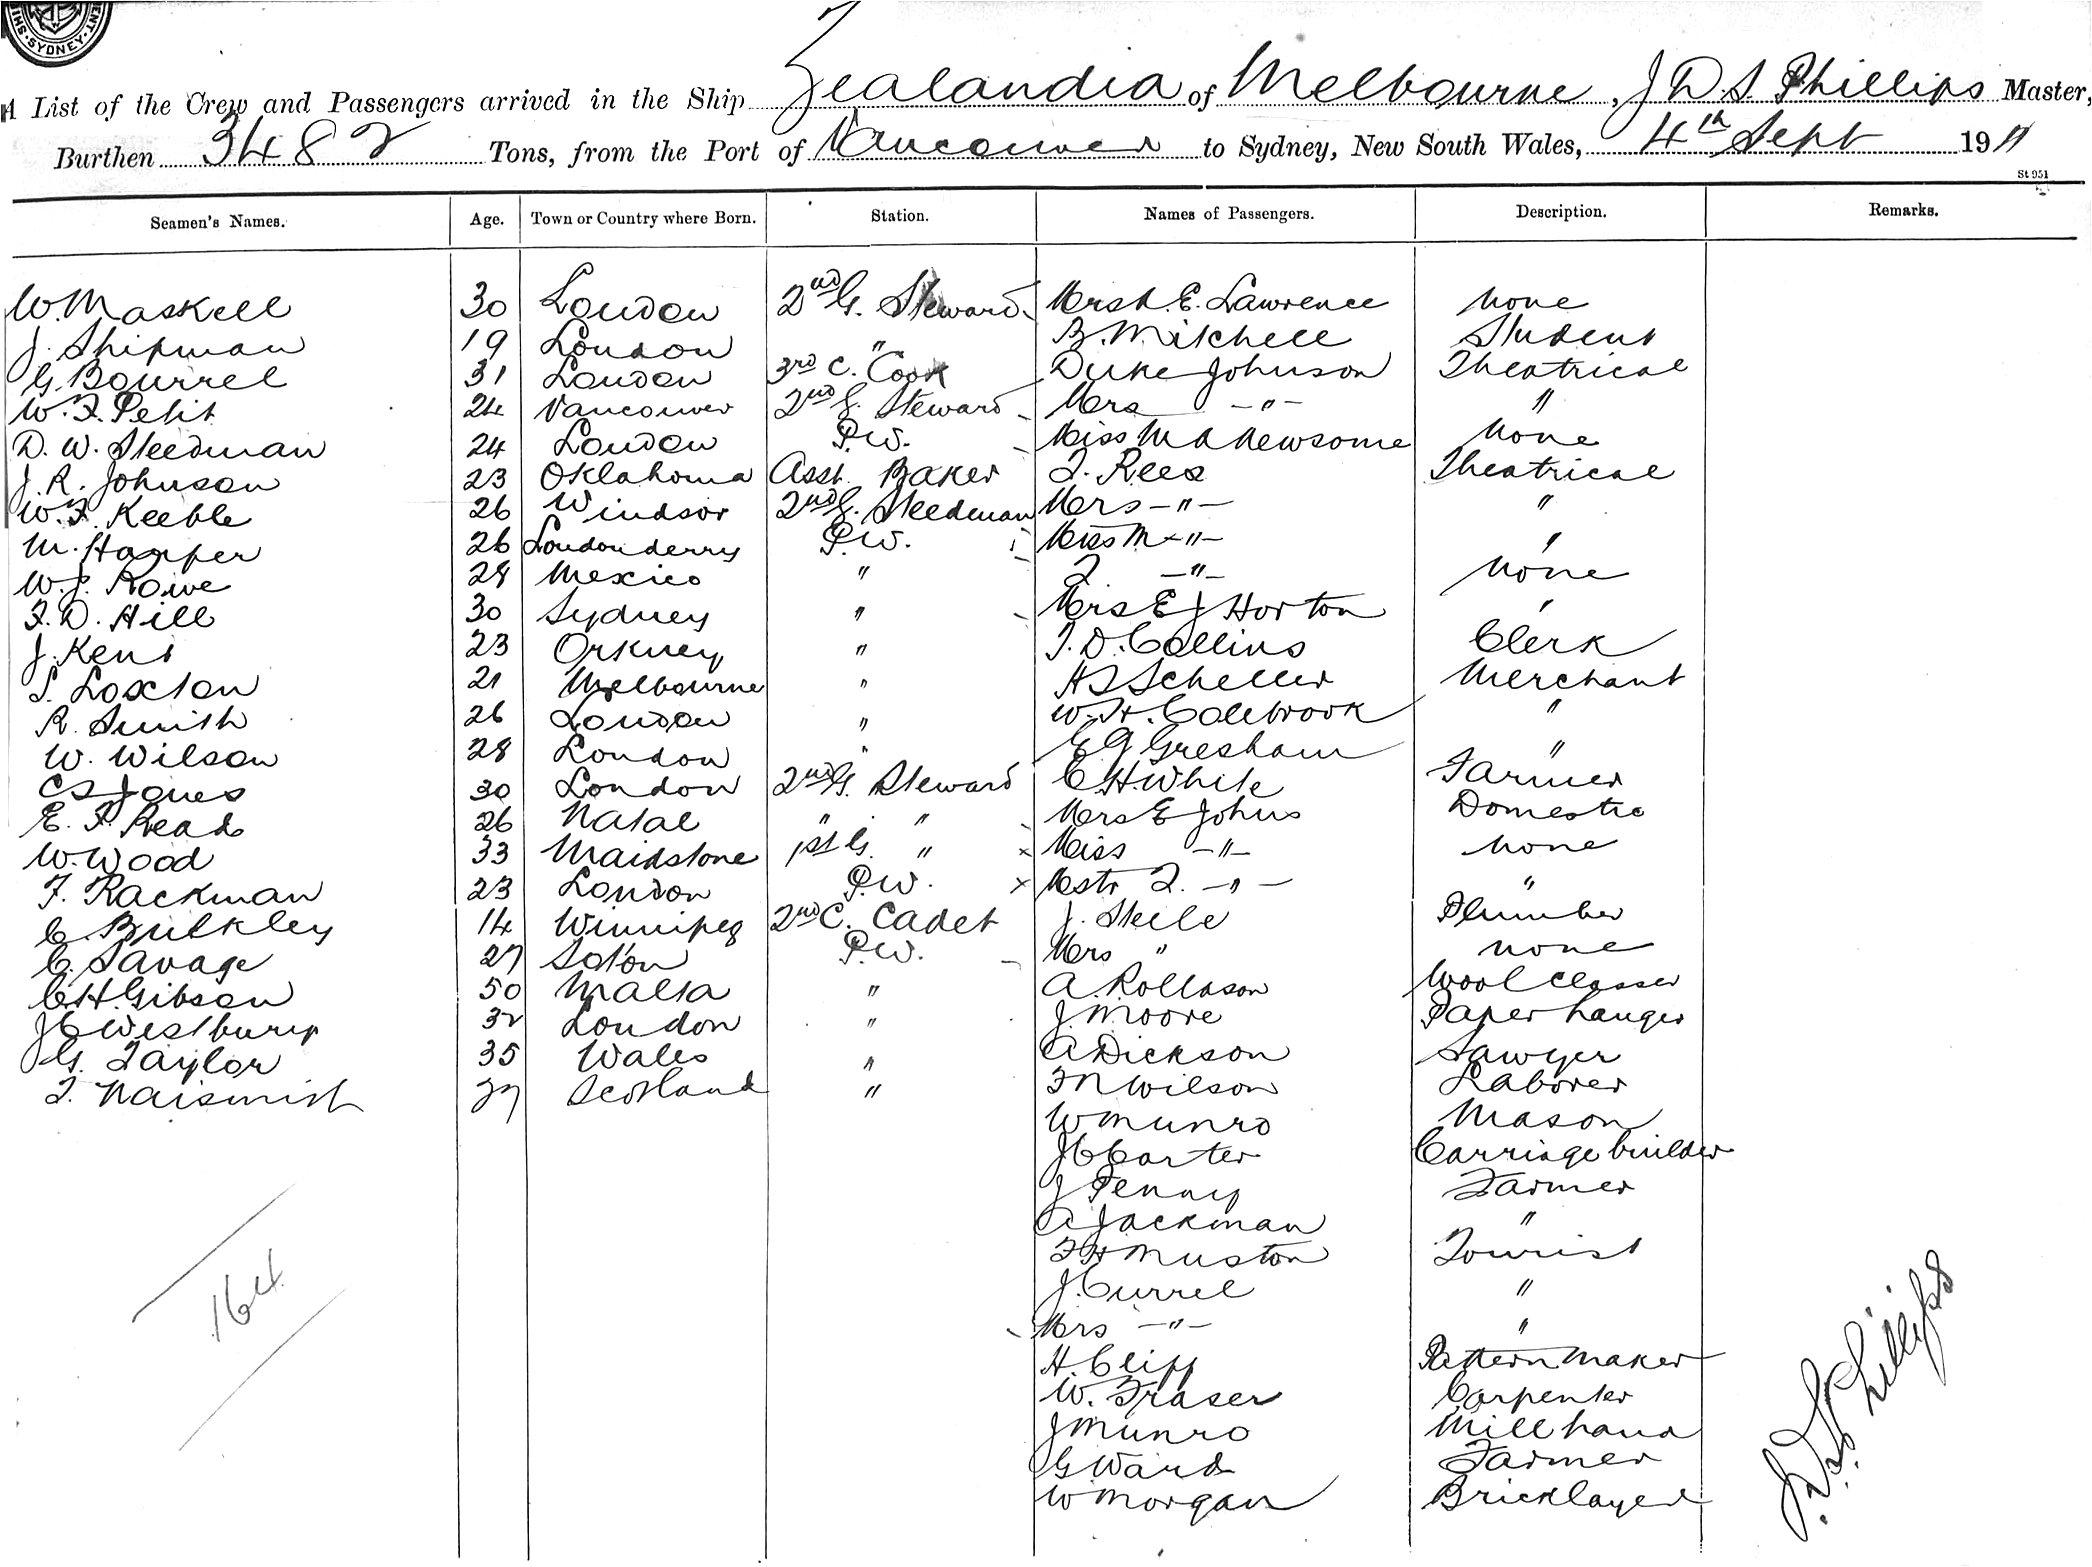 SYDNEY
A List of the Crew and Passengers arrived in the Ship Zealandia of Melbourne, J D S. Phillips Master,
Burthen 3482 Tons, from the Port of Vancouver to Sydney, New South Wales, 4th Sept 1911
St 951
Seamen's Names. Age. Town or Country where Born. Station. Names of Passengers. Description. Remarks.
W. Maskell 30 London 2nd G. Steward Mrs A. E. Lawrence None
J. Shipman 19 London " B. Mitchell Student
G Bourrel 31 London 3rd C. Cook Duke Johnson Theatrical
W. F. Petit 24 Vancouver 2nd G. Steward Mrs -"- "
D. W. Steedman 24 London P.W. Miss M A Newsome None
J. R. Johnson 23 Oklahoma Asst. Baker T. Rees Theatrical
W. F. Keeble 26 Windsor 2nd G. Steedman Mrs -"- "
M. Harper 26 Londonderry P.W. Miss M -"- "
W. J. Rowe 28 Mexico " T -"- None
F. D. Hill 30 Sydney " Mrs E J Horton "
J. Kent 23 Orkney " T. D. Collins Clerk
S. Loxton 21 Melbourne " H S Scheller Merchant
R. Smith 26 London " W. H. Colebrook "
W. Wilson 28 London " E G Gresham "
C S Jones 30 London 2nd G. Steward C. H. White Farmer
E. F. Read 26 Natal " " Mrs E Johns Domestic
W. Wood 33 Maidstone 1st G. " x Miss -"- None
F. Rackman 23 London P.W. x Mstr T. -"- "
C. Bulkley 14 Winnipeg 2nd C. Cadet J. Steile Plumber
C. Savage 27 Soton P.W. Mrs " None
C. H. Gibson 50 Malta " A. Rollason Wool Classer
J C Westbury 32 London " J. Moore Paper hanger
G. Taylor 35 Wales " A Dickson Sawyer
T. Naismith 27 Scotland " F N Wilson Laborer
W Munro Mason
J C Carter Carriage builder
J Penny Farmer
A Jackman "
F H Muston Tourist
J. Currel "
Mrs -"- "
H. Cliff Pattern Maker
W. Fraser Carpenter
J Munro Mill hand
G Ward Farmer
W Morgan Bricklayer
164
J. D. S. Phillips